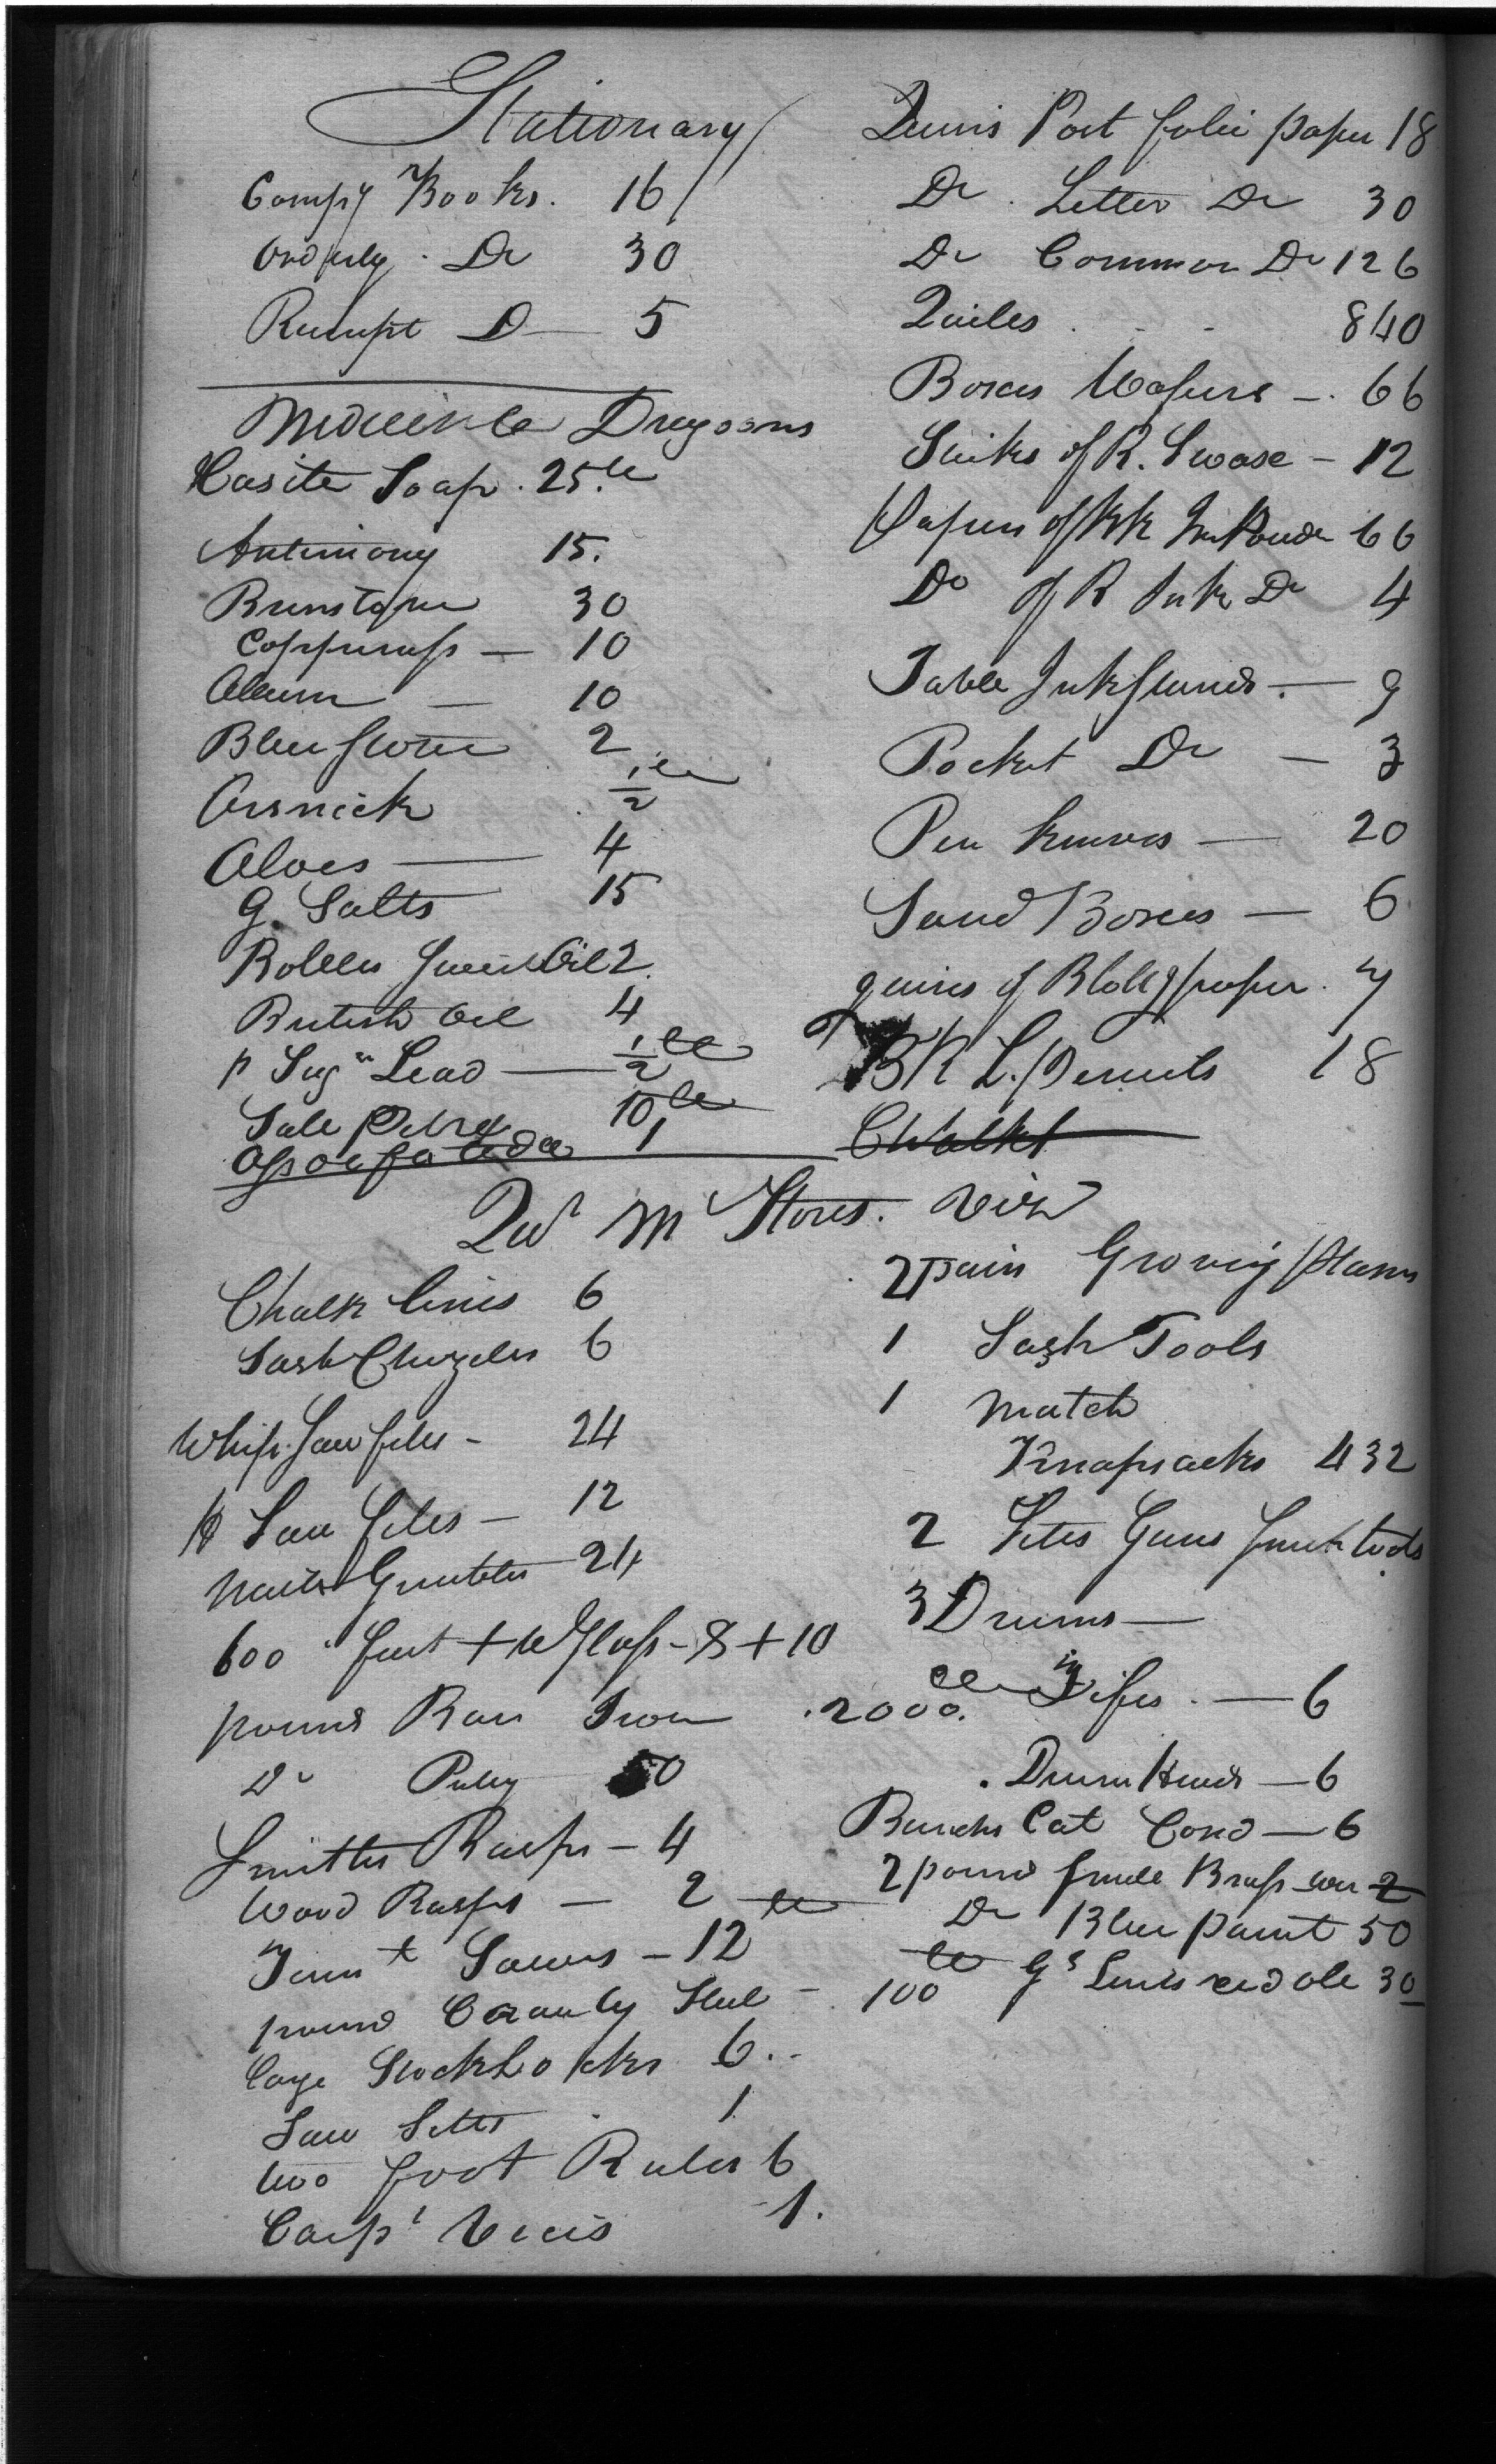 Stationary
Compy Books. 16
Orderly. Do 30
Receipt D— 5
Quires Post folio paper 18
Do. Letter Do 30
Do Common Do 126
Quiles . . . 840
Boxes Wafers — . 66
Sticks of R. Swase — 12
Papers of Bk Ink Powder 66
Do of R Ink Do 4
Table Inkstands . — 9
Pocket Do — 3
Pen knives — 20
Sand Boxes — 6
quires of Blottg paper . 7
BK L. Pencils 18
Chalk
Medicine Dragoons
Casite Soap . 25 lb
Antimony 15.
Brimstone 30
Copperass — 10
Allum — 10
Blue stone 2
Arsnick 1/2 lb
Aloes — 4
G. Salts 15
Bottles Sweet Oil 2.
British Oil 4
p Sugr Lead — 1/2 lb
Sale Petre 10 lb
Assoefateda 1
Qur M Stores.
Chalk lines 6
Sash Chizeles 6
Whip Saw files - 24
H Saw files — 12
Nail Gimblets 24
600 feet + W Glass - 8 + 10
pound Barr Iron . 2000. lb
Do 50
Smiths Rasps — 4
Wood Rasps — 2
Tennt Sawes — 12
pound Crawly Steel — 100 lb
large Stock Locks 6..
Saw Setts . 1
two foot Rules 6
Carpt Vices 1.
2 pairs Groving Planes
1 Sash Tools
1 match
Knapsacks 432
2 Setts Guns Smith tools
3 Drums —
Fifes . — 6
. Drum Heads — 6
Bunches Cat Cord — 6
2 pound Smale Brass wire 2
Do Blue paint 50
Gs Linseed ole 30